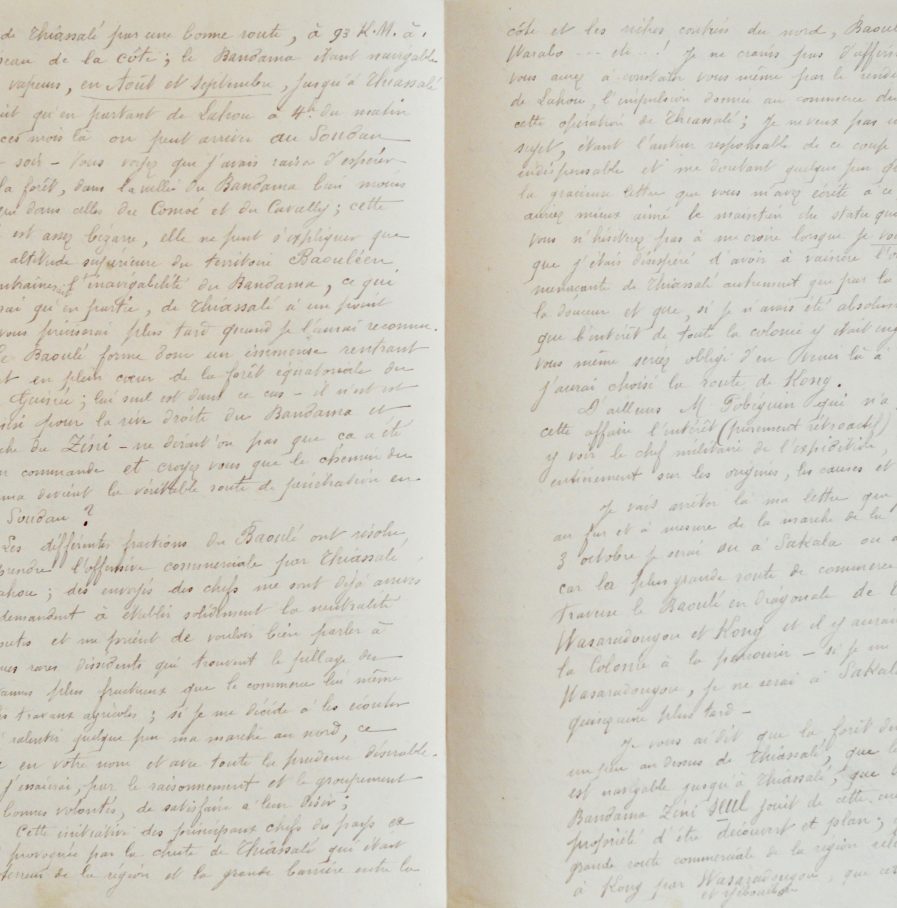 de Thiassalé par une bonne route, à 93 K.M. à
de la côte ; le Bandama étant navigable
vapeurs, en Août et septembre, jusqu'à Thiassalé
qu'en partant de Lahou à 4h du matin
ces mois là on peut arriver au Soudan
soir - vous voyez que j'avais raison d'espérer
la forêt, dans la vallée du Bandama bien moins
que dans celles du Comoé et du Cavally ; cette
est assez bizarre, elle ne peut s'expliquer que
altitude supérieure du territoire Baouléen
l'innavigabilité du Bandama, ce qui
qu'en partie, de Thiassalé à un point
vous préciserai plus tard quand je l'aurai reconnu.
le Baoulé forme donc un immense rentrant
en plein cœur de la forêt équatoriale du
Guinée ; lui seul est dans ce cas - il n'est
pour la rive droite du Bandama et
du Zini - ne dirait'on pas que ça a été
commande et croyez vous que le chemin du
devient la véritable route de pénétration en
Soudan ?
Les différentes fractions du Baoulé ont résolu
prendre l'offensive commerciale par Thiassalé
; des envoyés des chefs me sont déjà arrivés
demandent à établir solidement la neutralité
et me prient de vouloir bien parler à
rares dissidents qui trouvent le pillage des
plus fructueux que le commerce lui même
travaux agricoles ; si je me décide à les écouter
ralentir quelque peu ma marche au nord, ce
en votre nom et avec toute la prudence désirable.
J'essaierai, par le raisonnement et le groupement
bonnes volontés, de satisfaire à leur désir ;
Cette initiative des principaux chefs des pays
provoquée par la chute de Thiassalé qui était
terreur de la région et la grande barrière entre la
côte et les riches contrées du nord, Baoulé
Warabo --- etc---! Je ne crains pas d'affirmer
vous aurez à constater vous même par le
de Lahou, l'impulsion donnée au commerce
cette opération de Thiassalé ; je ne veux pas
sujet, étant l'auteur responsable de ce coup
indispensable et me doutant quelque peu
la gracieuse lettre que vous m'avez écrite à ce
auriez mieux aimé le maintien du statu quo
vous n'hésitrez pas à me croire lorsque je
que j'étais désespéré d'avoir à vaincre
menaçante de Thiassalé autrement que par la
la douceur et que, si je n'avais été
que l'intérêt de toute la colonie y était
vous même seriez obligé d'en venir là à
j'aurai choisi la route de Kong.
D'ailleurs M. Pobéguin qui n'a
cette affaire l'intérêt (purement rétroactif)
y voir le chef militaire de l'expédition,
entièrement sur les origines, les causes et
Je vais arrêter là ma lettre que
au fur et à mesure de la marche de la
3 octobre je serai ou à Sakala ou
car la plus grande route de commerce
traverse le Baoulé en diagonale de
Wasaradougou et Kong et il y aurait
la Colonie à la parcourir - si je
Wasaradougou, je ne serai à Sakala
quinzaine plus tard -
Je vous ai dit que la forêt
un peu au dessus de Thiassalé, que le
est navigable jusqu'à Thiassalé, que
Bandama Zini seul jouit de cette
propriété d'être découvert et plan ;
grande route commerciale de la région
à Kong par Wasaradougou, que